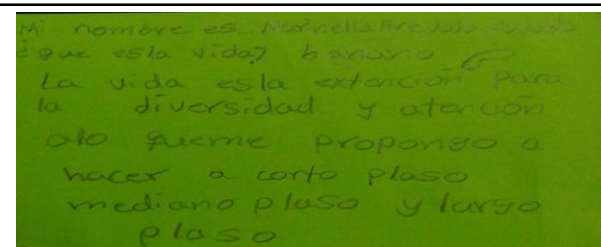 Mi nombre es Marinella Arevalo
¿que esla vida? banano
La vida esla extención Para
la diversidad y atención
alo queme propongo a
hacer a corto plaso
mediano plaso y largo
plaso